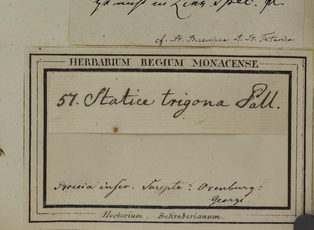 cf. St. Besseriana & St. Tatarica
HERBARIUM REGIUM MONACENSE.
57. Statice trigona Pall.
Rossia infer. Sarepte: Orenburg:
Georgi
Herbarium Schreberianum.